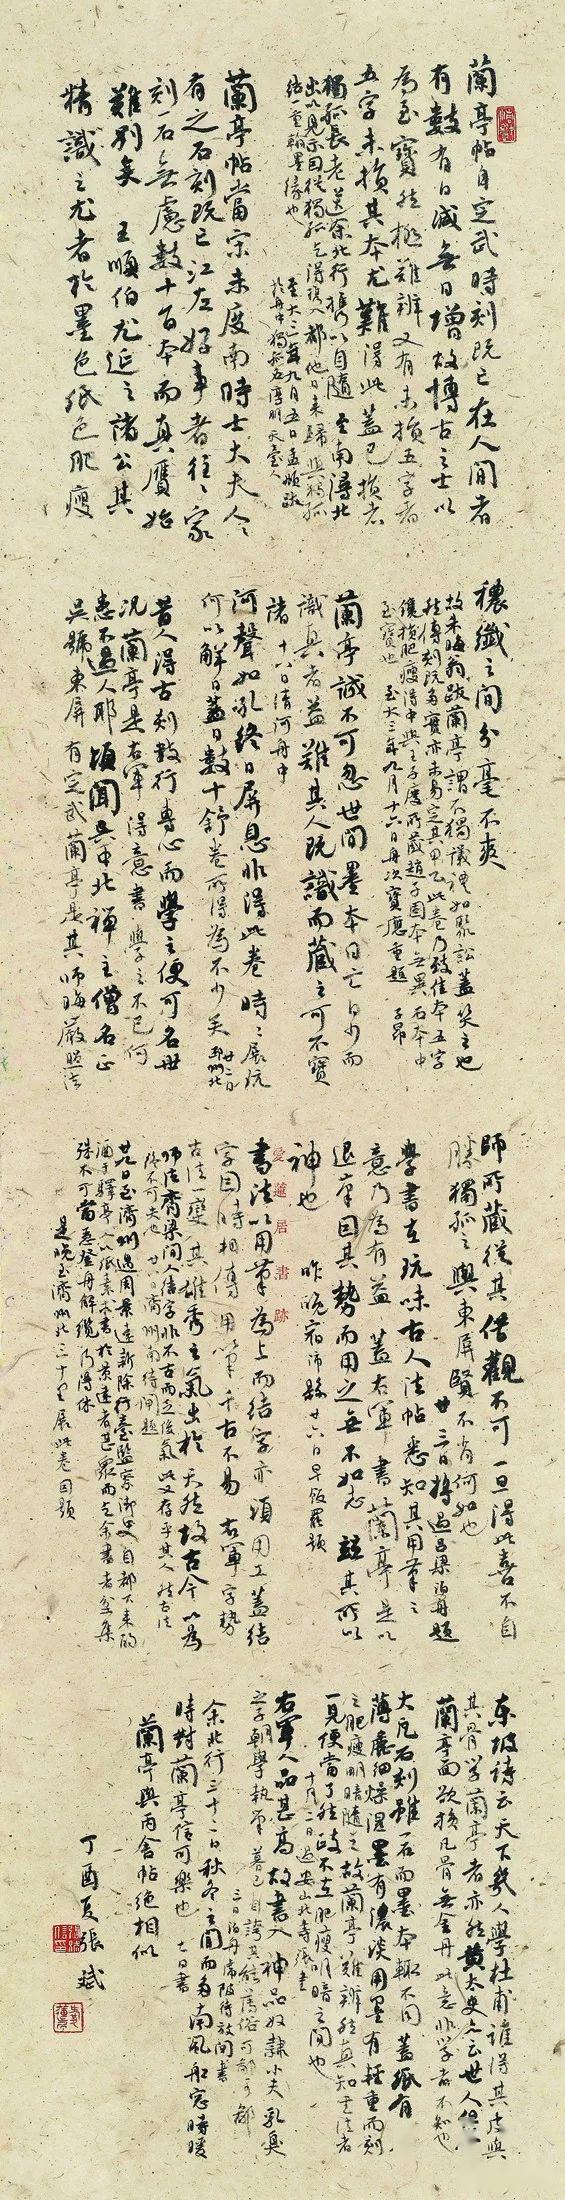 蘭亭帖自定武時刻既亡在人間者
有數有日減無日增故博古之士以
為至寶然極難辨又有未損五字者
五字未損其本尤難得此蓋已損者
獨孤長老送余北行攜以自隨至南潯北
出以見示因從獨孤乞得携入都他日來歸與獨孤
結一重翰墨緣也
至大三年九月五日孟頫跋
於舟中獨孤名淳朋天台人
蘭亭帖當宋未度南時士大夫人人
有之石刻既亡江左好事者往往家
刻一石無慮數十百本而真贗始
難別矣 王順伯尤延之諸公其
精識之尤者於墨色紙色肥瘦
穠纖之間分毫不爽
故朱晦翁跋蘭亭謂不獨議禮如聚訟蓋笑之也
然傳刻既多實亦未易定其甲乙此卷乃致佳本五字
鑱損肥瘦得中與王子慶所藏趙子固本無異石本中
至寶也 至大三年九月十六日舟次寶應重題 子昂
蘭亭誠不可忽世間墨本日亡日少而
識真者益難其人既識而藏之可不寶
諸 十八日清河舟中
河聲如吼終日屏息非得此卷時時展玩
何以解日蓋日數十舒卷所得為不少矣 廿二日邳州北
昔人得古刻數行專心而學之便可名世
況蘭亭是右軍得意書學之不已何
患不過人耶 頃聞吳中北禪主僧名正
吳號東屏有定武蘭亭是其師晦巖照法
師所藏從其借觀不可一旦得此喜不自
勝獨孤之與東屏賢不肖何如也
廿三日將過呂梁泊舟題
學書在玩味古人法帖悉知其用筆之
意乃為有益 蓋右軍書蘭亭是以
退筆因其勢而用之無不如志 茲其所以
神也 昨晚宿沛縣廿六日早飯罷題
愛蓮居書跡
書法以用筆為上而結字亦須用工蓋結
字因時相傳用筆千古不易 右軍字勢
古法一變其雄秀之氣出於天然故古今以為
師法齊梁間人結字非不古而乏後氣此又存乎其人然古法
終不可失也 廿八日濟州南待閘題
廿九日至濟州遇周景遠新除行臺監察御史自都下來的
酒于驛亭人以紙素求書於景遠者甚眾而乞余書者坌集
殊不可當急登舟解纜乃得休
是晚至濟州北三十里展此卷因題
東坡詩云天下幾人學杜甫誰得其皮與
其骨學蘭亭者亦然黃太史亦云世人但
蘭亭面欲換凡骨無金丹此意非學書者不知也
大凡石刻雖一石而墨本輒不同蓋紙有
薄麤細燥濕墨有濃淡用墨有輕重而刻
之肥瘦明暗隨之故蘭亭難辨然真知書法者
一見便當了然政不在肥瘦明暗之間也
十月二日過安山北寺張書
右軍人品甚高故書入神品奴隸小夫乳臭
之子朝學執筆暮已自誇其能薄俗可鄙可鄙
三日泊舟虎陂待放閘書
余北行三十二日秋冬之間而多南風船窗時暖
時對蘭亭信可樂也 七日書
蘭亭與丙舍帖絕相似
丁酉夏張斌